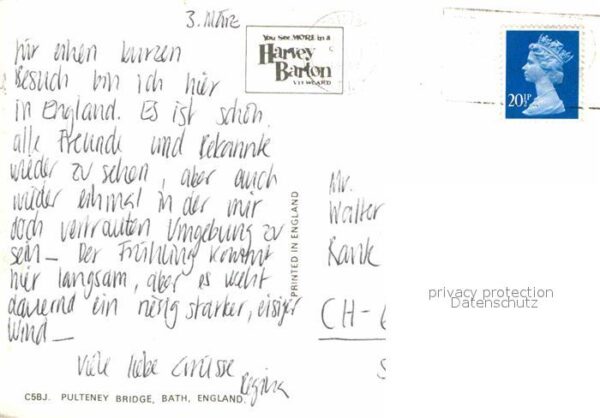 3. März
für einen kurzen
Besuch bin ich hier
in England. Es ist schön,
alle Freunde und Bekannte
wieder zu sehen, aber auch
wieder einmal in der mir
doch vertrauten Umgebung zu
sein_ Der Frühling kommt
hier langsam, aber es weht
dauernd ein riesig starker, eisiger
Wind_
Viele liebe Grüsse
Regina
C5BJ. PULTENEY BRIDGE, BATH, ENGLAND.
You See MORE in a
Harvey
Barton
VIEWCARD
PRINTED IN ENGLAND
20½P
Mr.
Walter
Rank
CH-6
S
privacy protection
Datenschutz